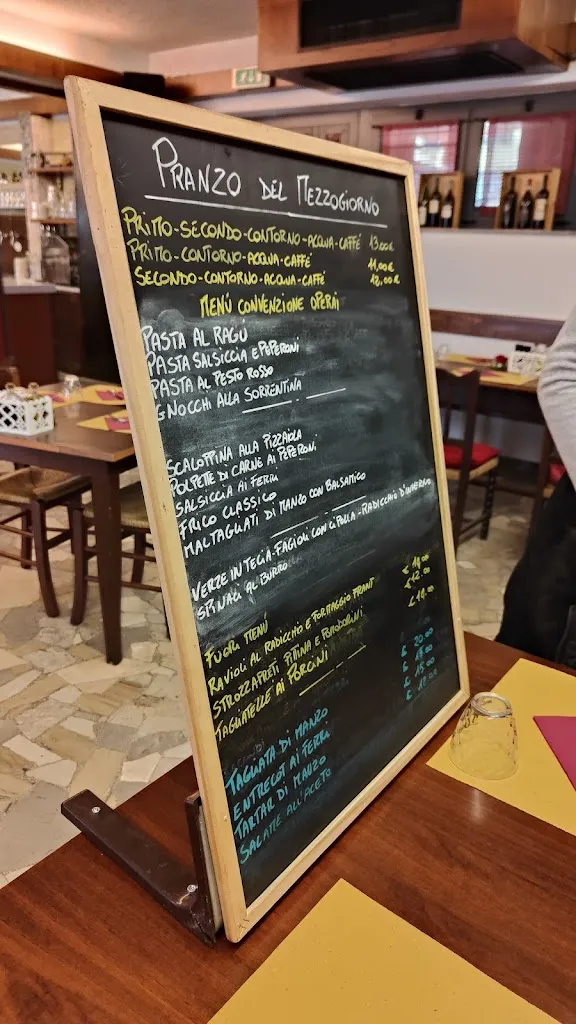 PRANZO DEL MEZZOGIORNO
PRIMO-SECONDO-CONTORNO-ACQUA-CAFFÉ 13,00€
PRIMO-CONTORNO-ACQUA-CAFFÉ 11,00€
SECONDO-CONTORNO-ACQUA-CAFFÉ 12,00€
MENÚ CONVENZIONE OPERAI
PASTA AL RAGÚ
PASTA SALSICCIA E PEPERONI
PASTA AL PESTO ROSSO
GNOCCHI ALLA SORRENTINA
SCALOPPINA ALLA PIZZAIOLA
POLPETTE DI CARNE AI PEPERONI
SALSICCIA AI FERRI
FRICO CLASSICO
MALTAGLIATI DI MANZO CON BALSAMICO
VERZE IN TECIA-FAGIOLI CON CIPOLLA-RADICCHIO D'INVERNO
SPINACI AL BURRO
FUORI MENÚ
RAVIOLI AL RADICCHIO E FORMAGGIO FRANT €
STROZZAPRETI PITINA E POMODORINI € 12.00
TAGLIATELLE AI PORCINI € 14.00
TAGLIATA DI MANZO € 20.00
ENTRECOT AI FERRI €
TARTAR DI MANZO €
SALAME ALL'ACETO €